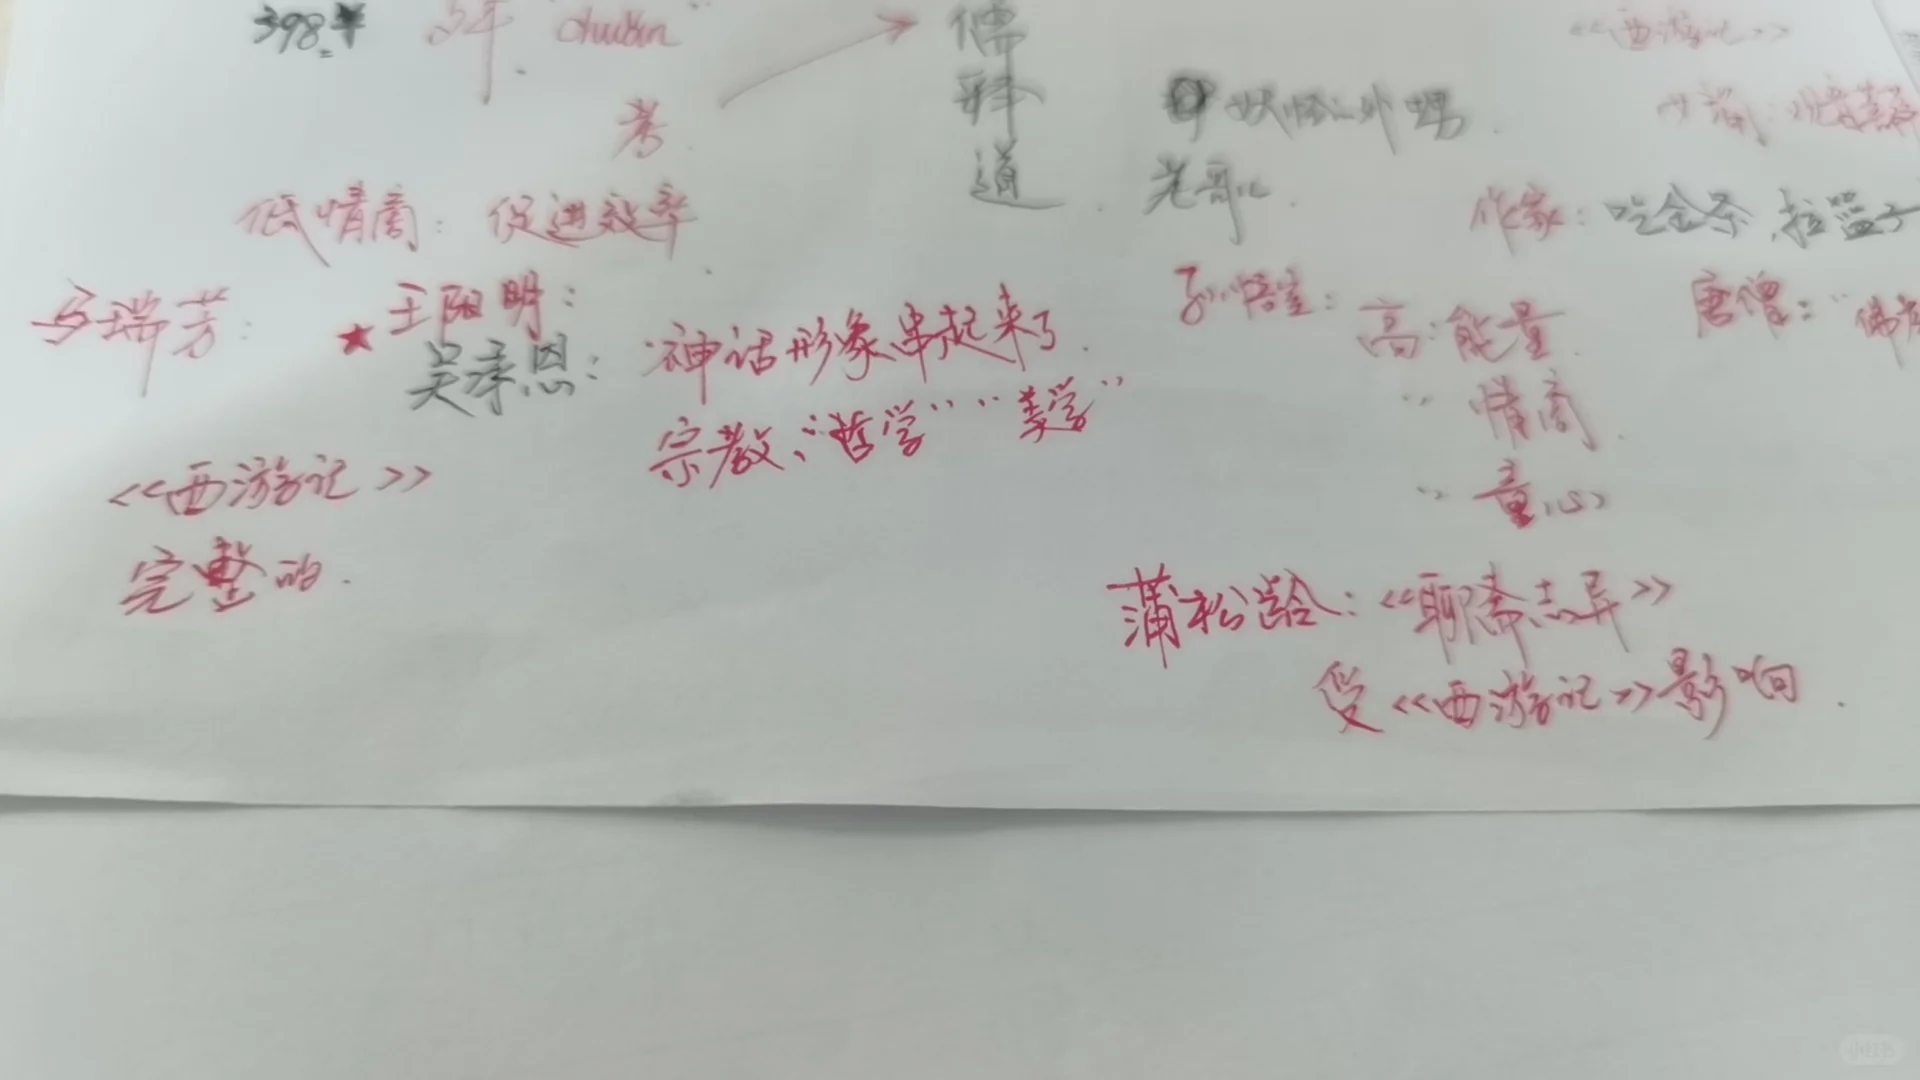 398年
考
儒
释
道
妖怪
老哥
《西游记》
低情商：促进效率
作家：
马瑞芳：
★王阳明：
吴承恩：神话形象串起来了.
宗教、"哲学" "美学"
孙悟空：高：能量
〃 情商
〃 童心
唐僧："佛
《西游记》
完整的.
蒲松龄：《聊斋志异》
受《西游记》影响.
小红书